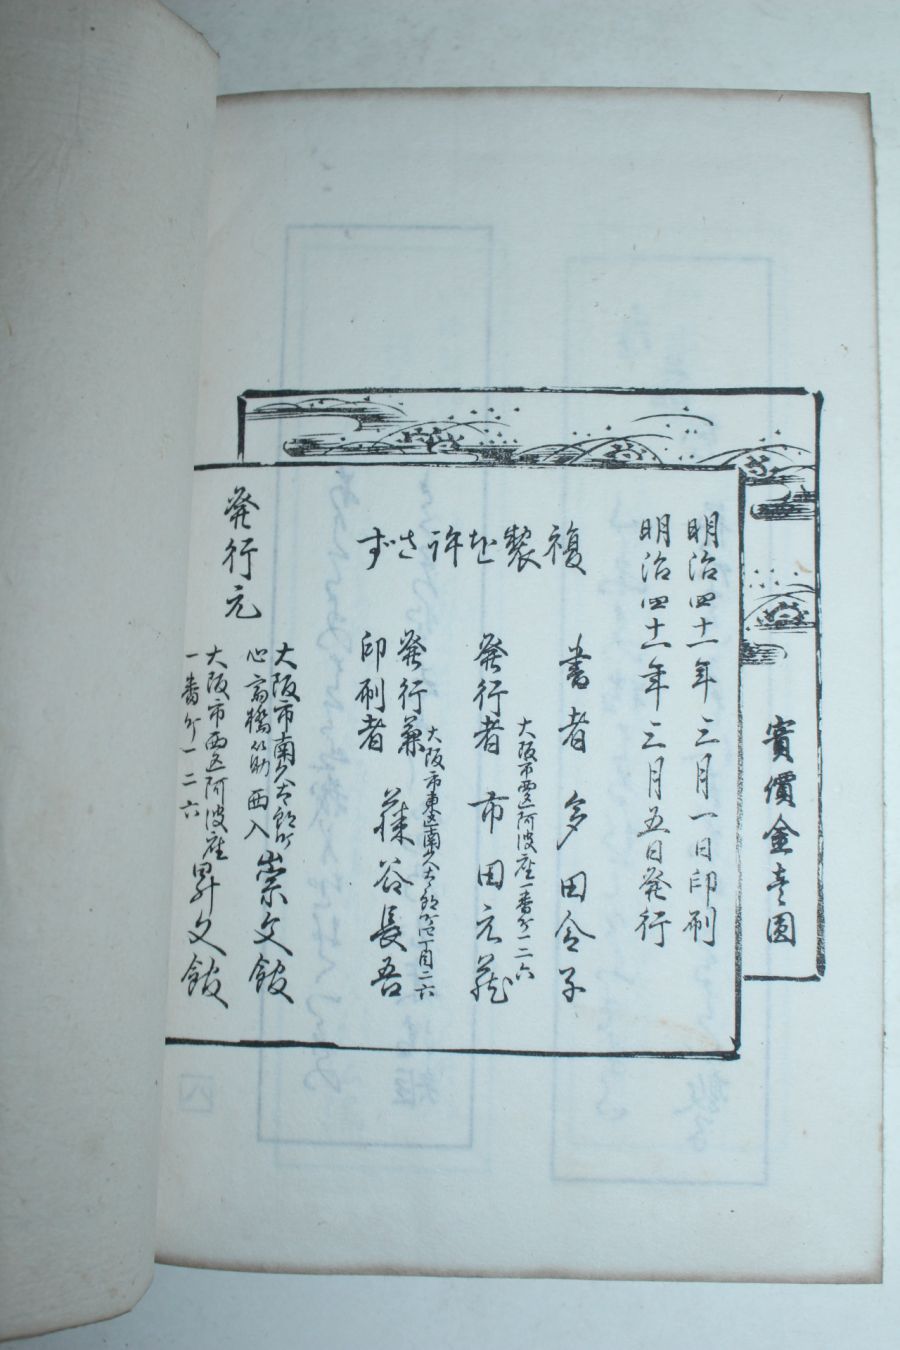 實價金壱圓
明治四十一年三月一日印刷
明治四十一年三月五日発行
複製を許さず
書者 多田令子
大阪市西区阿波座一番丁一二六
発行者 市田元蔵
大阪市東区南久太郎町四丁目二六
発行兼
印刷者 藤谷長吾
発行元
大阪市南久太郎町
心斎橋筋西入 崇文館
大阪市西区阿波座
一番丁一二六 昇文館